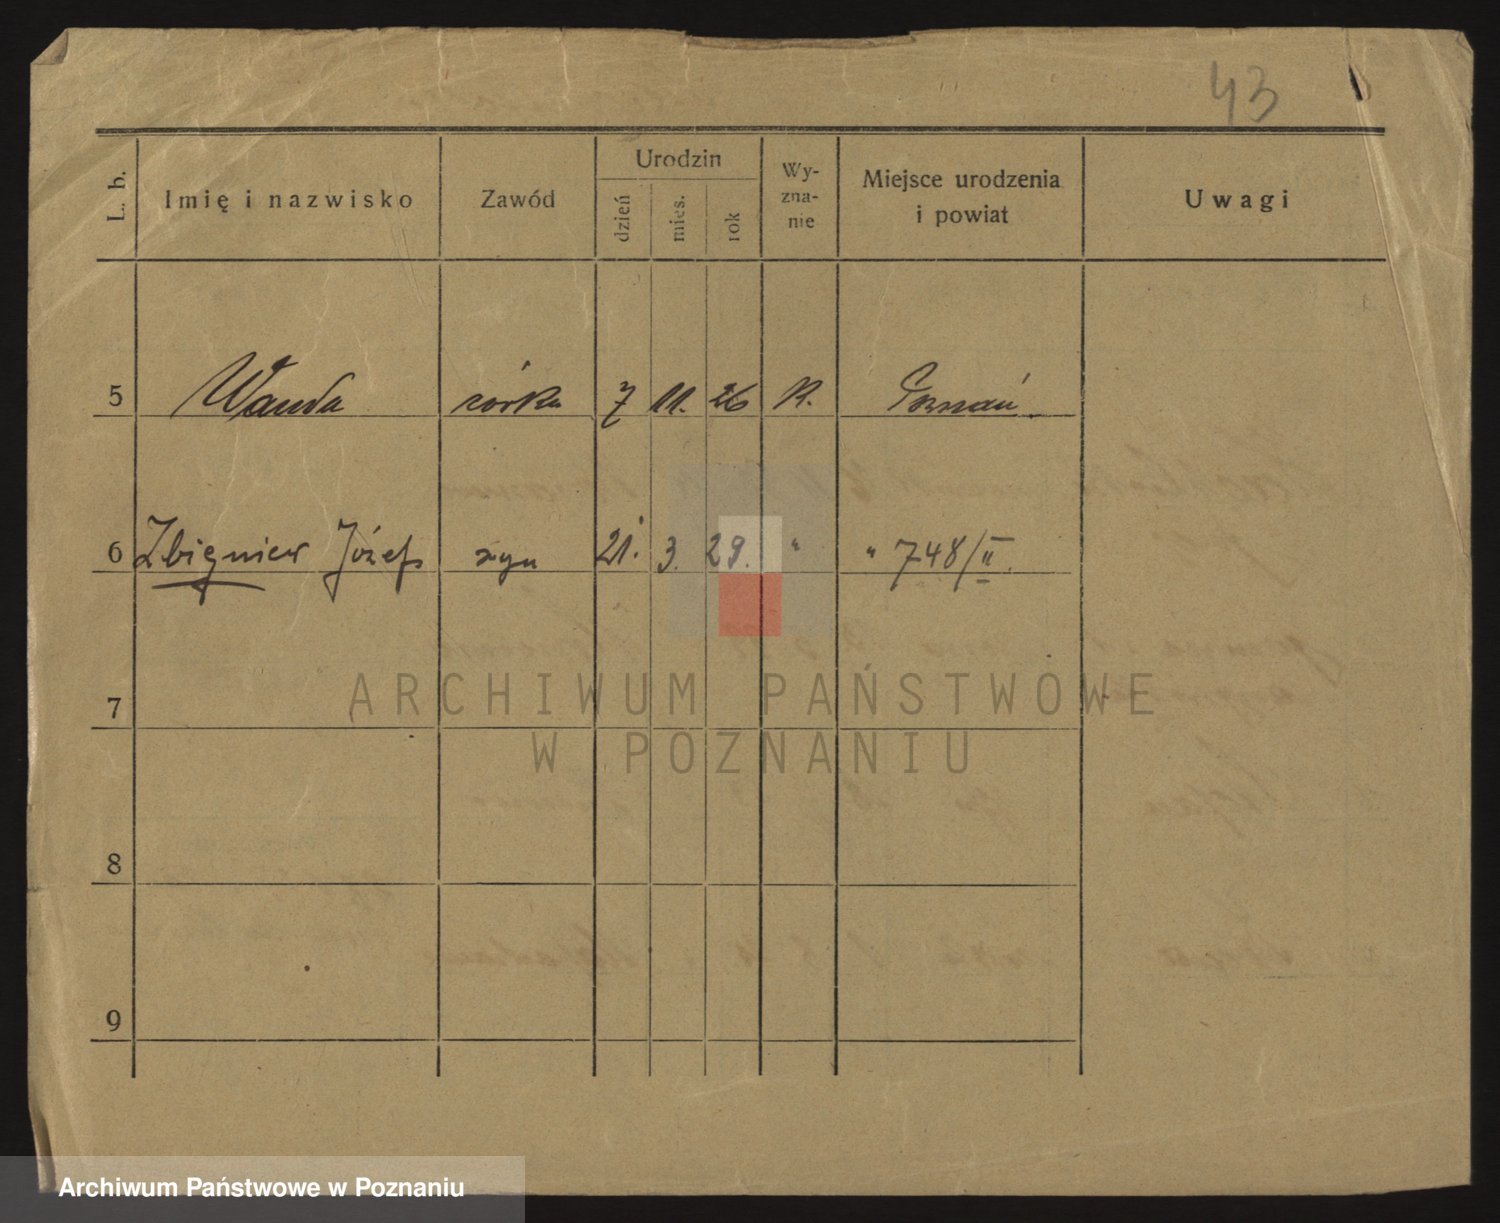 43
L. b. Imię i nazwisko Zawód Urodzin dzień mies. rok Wy-zna-nie Miejsce urodzenia i powiat Uwagi
5 Wanda córka 7 11. 26 R. Poznań
6 Zbigniew Józef syn 21. 3. 29. " " 748/II.
7
8
9
ARCHIWUM PAŃSTWOWE
W POZNANIU
Archiwum Państwowe w Poznaniu